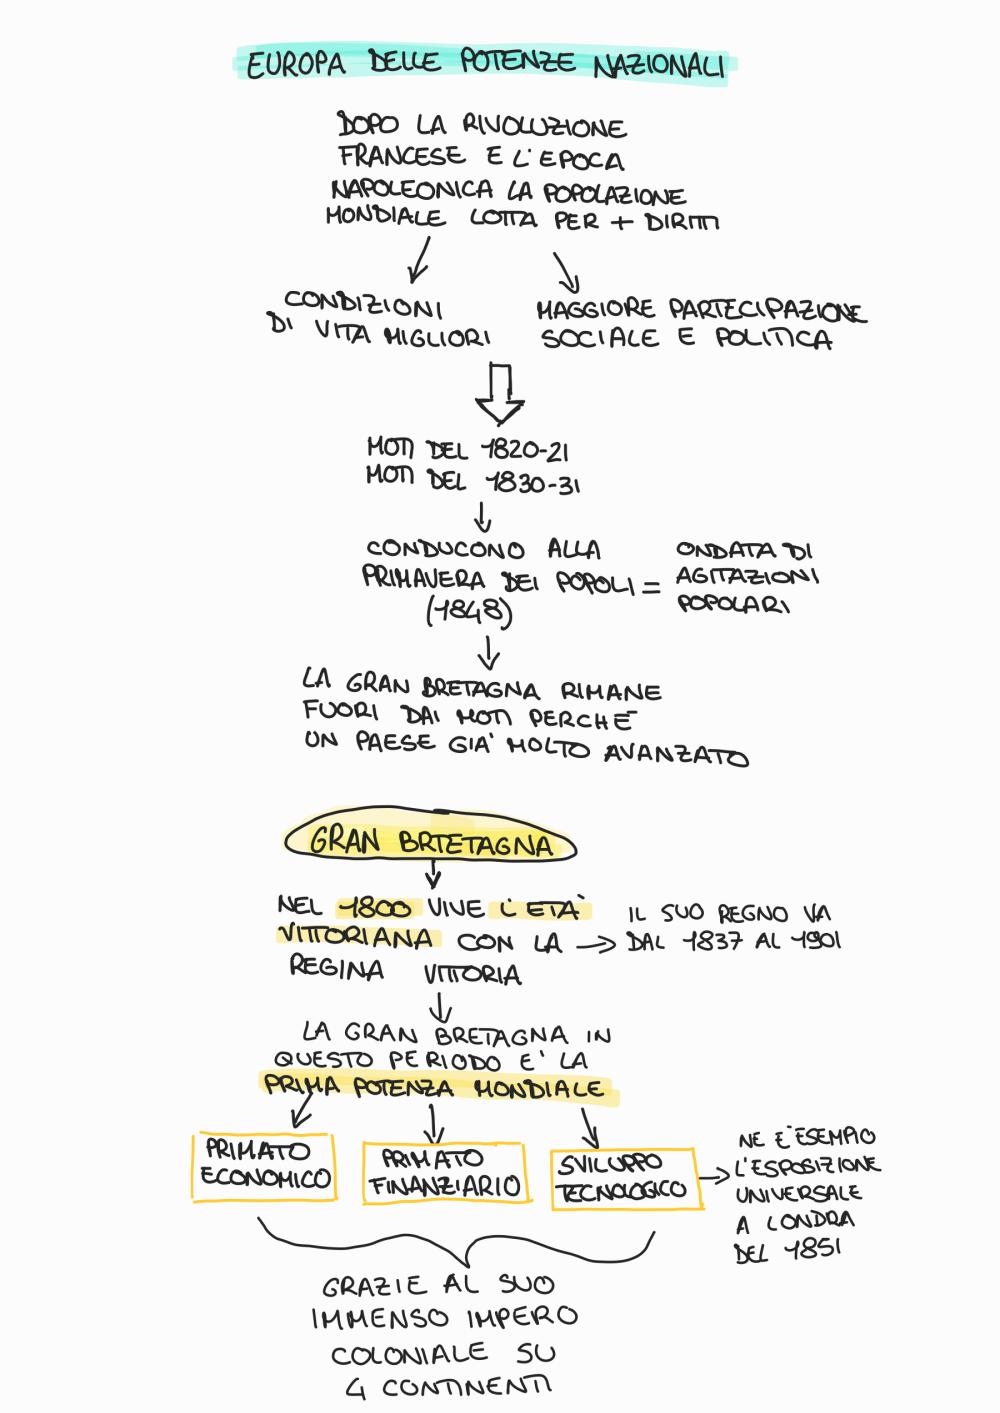 EUROPA DELLE POTENZE NAZIONALI
DOPO LA RIVOLUZIONE
FRANCESE E L'EPOCA
NAPOLEONICA LA POPOLAZIONE
MONDIALE LOTTA PER + DIRITTI
CONDIZIONI
DI VITA MIGLIORI
MAGGIORE PARTECIPAZIONE
SOCIALE E POLITICA
MOTI DEL 1820-21
MOTI DEL 1830-31
CONDUCONO ALLA
PRIMAVERA DEI POPOLI =
(1848)
ONDATA DI
AGITAZIONI
POPOLARI
LA GRAN BRETAGNA RIMANE
FUORI DAI MOTI PERCHÉ
UN PAESE GIA' MOLTO AVANZATO
GRAN BRTETAGNA
NEL 1800 VIVE L'ETÀ
VITTORIANA CON LA
REGINA VITTORIA
IL SUO REGNO VA
DAL 1837 AL 1901
LA GRAN BRETAGNA IN
QUESTO PERIODO E' LA
PRIMA POTENZA MONDIALE
PRIMATO
ECONOMICO
PRIMATO
FINANZIARIO
SVILUPPO
TECNOLOGICO
NE E' ESEMPIO
L'ESPOSIZIONE
UNIVERSALE
A LONDRA
DEL 1851
GRAZIE AL SUO
IMMENSO IMPERO
COLONIALE SU
4 CONTINENTI